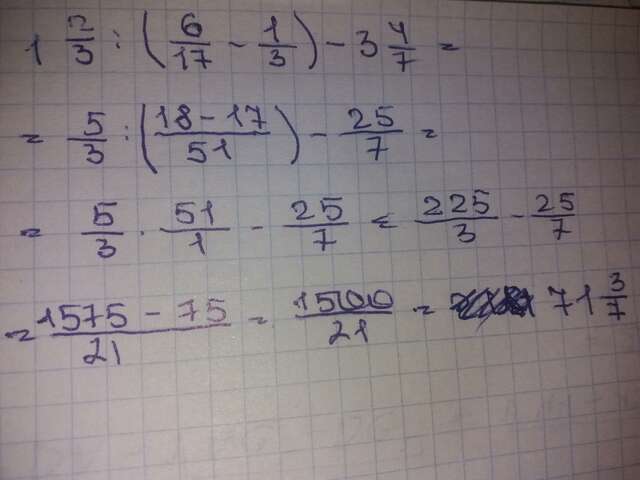 1 2/3 : (6/17 - 1/3) - 3 4/7 =
= 5/3 : (18-17/51) - 25/7 =
= 5/3 · 51/1 - 25/7 = 225/3 - 25/7
= 1575-75/21 = 1500/21 = 71 3/7